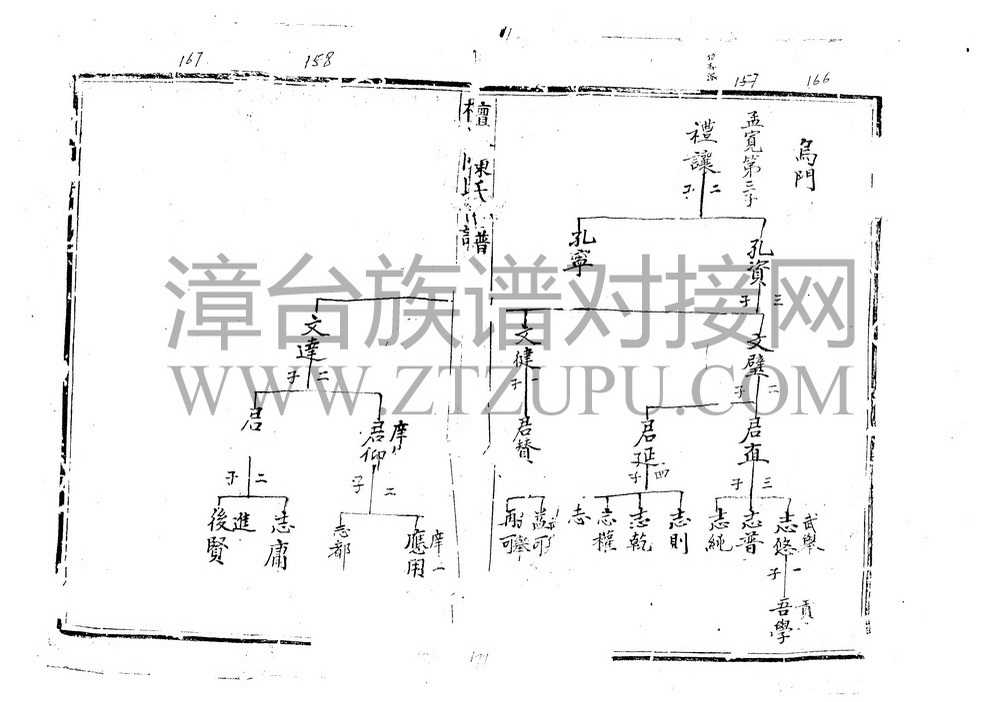 167
158
157
166
烏門
孟寬第三子
禮讓
二子
孔資
三子
孔寧
文璧
二子
文健
一子
文達
二子
君直
三子
君延
四子
君贊
庠
君仰
二子
君
二子
武舉
志修
一子
志普
志純
志則
志乾
志權
志
再可
庠一
應用
志都
志庸
進
後賢
貢
吾學
陳氏
譜
漳台族谱对接网
WWW.ZTZUPU.COM